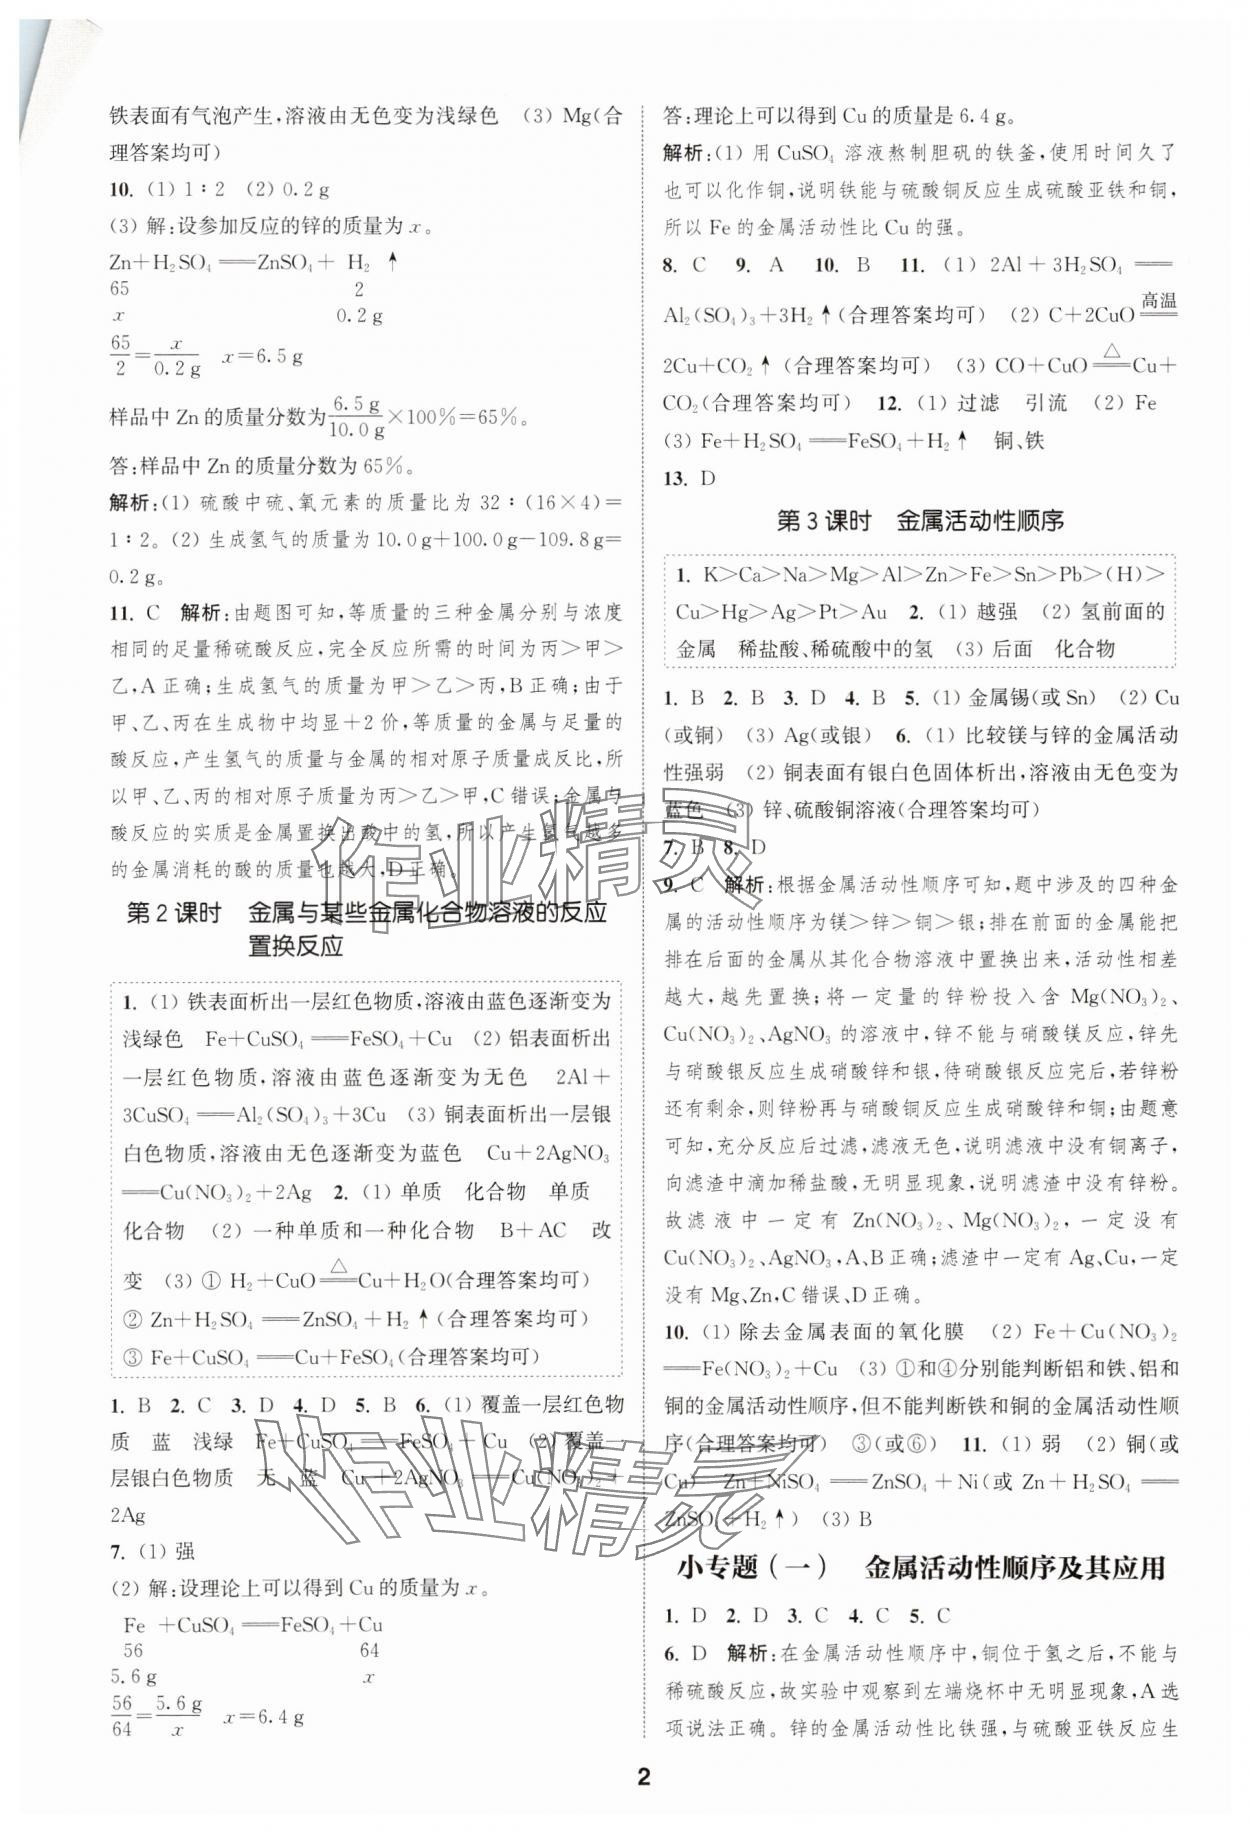 铁表面有气泡产生,溶液由无色变为浅绿色 (3) Mg(合
理答案均可)
10. (1) 1∶2 (2) 0.2 g
(3) 解:设参加反应的锌的质量为 x。
Zn+H₂SO₄══ZnSO₄+ H₂ ↑
65 2
x 0.2 g
65/2=x/0.2 g x=6.5 g
样品中 Zn 的质量分数为6.5 g/10.0 g×100%=65%。
答:样品中 Zn 的质量分数为 65%。
解析:(1) 硫酸中硫、氧元素的质量比为 32∶(16×4)=
1∶2。(2) 生成氢气的质量为 10.0 g+100.0 g-109.8 g=
0.2 g。
11. C 解析:由题图可知,等质量的三种金属分别与浓度
相同的足量稀硫酸反应,完全反应所需的时间为丙>甲>
乙,A 正确;生成氢气的质量为甲>乙>丙,B 正确;由于
甲、乙、丙在生成物中均显+2 价,等质量的金属与足量的
酸反应,产生氢气的质量与金属的相对原子质量成反比,所
以甲、乙、丙的相对原子质量为丙>乙>甲,C 错误;金属与
酸反应的实质是金属置换出酸中的氢,所以产生氢气越多
的金属消耗的酸的质量也越大,D 正确。
第 2 课时 金属与某些金属化合物溶液的反应
置换反应
1. (1) 铁表面析出一层红色物质,溶液由蓝色逐渐变为
浅绿色 Fe+CuSO₄══FeSO₄+Cu (2) 铝表面析出
一层红色物质,溶液由蓝色逐渐变为无色 2Al+
3CuSO₄══Al₂(SO₄)₃+3Cu (3) 铜表面析出一层银
白色物质,溶液由无色逐渐变为蓝色 Cu+2AgNO₃
══Cu(NO₃)₂+2Ag 2. (1) 单质 化合物 单质
化合物 (2) 一种单质和一种化合物 B+AC 改
变 (3) ① H₂+CuO═△═Cu+H₂O(合理答案均可)
② Zn+H₂SO₄══ZnSO₄+H₂↑(合理答案均可)
③ Fe+CuSO₄══Cu+FeSO₄(合理答案均可)
1. B 2. C 3. D 4. D 5. B 6. (1) 覆盖一层红色物
质 蓝 浅绿 Fe+CuSO₄══FeSO₄+Cu (2) 覆盖一
层银白色物质 无 蓝 Cu+2AgNO₃══Cu(NO₃)₂+
2Ag
7. (1) 强
(2) 解:设理论上可以得到 Cu 的质量为 x。
Fe +CuSO₄══FeSO₄+Cu
56 64
5.6 g x
56/64=5.6 g/x x=6.4 g
答:理论上可以得到 Cu 的质量是 6.4 g。
解析:(1) 用 CuSO₄ 溶液熬制胆矾的铁釜,使用时间久了
也可以化作铜,说明铁能与硫酸铜反应生成硫酸亚铁和铜,
所以 Fe 的金属活动性比 Cu 的强。
8. C 9. A 10. B 11. (1) 2Al+3H₂SO₄══
Al₂(SO₄)₃+3H₂↑(合理答案均可) (2) C+2CuO═高温═
2Cu+CO₂↑(合理答案均可) (3) CO+CuO═△═Cu+
CO₂(合理答案均可) 12. (1) 过滤 引流 (2) Fe
(3) Fe+H₂SO₄══FeSO₄+H₂↑ 铜、铁
13. D
第 3 课时 金属活动性顺序
1. K>Ca>Na>Mg>Al>Zn>Fe>Sn>Pb>(H)>
Cu>Hg>Ag>Pt>Au 2. (1) 越强 (2) 氢前面的
金属 稀盐酸、稀硫酸中的氢 (3) 后面 化合物
1. B 2. B 3. D 4. B 5. (1) 金属锡(或 Sn) (2) Cu
(或铜) (3) Ag(或银) 6. (1) 比较镁与锌的金属活动
性强弱 (2) 铜表面有银白色固体析出,溶液由无色变为
蓝色 (3) 锌、硫酸铜溶液(合理答案均可)
7. B 8. D
9. C 解析:根据金属活动性顺序可知,题中涉及的四种金
属的活动性顺序为镁>锌>铜>银;排在前面的金属能把
排在后面的金属从其化合物溶液中置换出来,活动性相差
越大,越先置换;将一定量的锌粉投入含 Mg(NO₃)₂、
Cu(NO₃)₂、AgNO₃ 的溶液中,锌不能与硝酸镁反应,锌先
与硝酸银反应生成硝酸锌和银,待硝酸银反应完后,若锌粉
还有剩余,则锌粉再与硝酸铜反应生成硝酸锌和铜;由题意
可知,充分反应后过滤,滤液无色,说明滤液中没有铜离子,
向滤渣中滴加稀盐酸,无明显现象,说明滤渣中没有锌粉。
故滤液中一定有 Zn(NO₃)₂、Mg(NO₃)₂,一定没有
Cu(NO₃)₂、AgNO₃,A、B 正确;滤渣中一定有 Ag、Cu,一定
没有 Mg、Zn,C 错误、D 正确。
10. (1) 除去金属表面的氧化膜 (2) Fe+Cu(NO₃)₂
══Fe(NO₃)₂+Cu (3) ①和④分别能判断铝和铁、铝和
铜的金属活动性顺序,但不能判断铁和铜的金属活动性顺
序(合理答案均可) ③(或⑥) 11. (1) 弱 (2) 铜(或
Cu) Zn+NiSO₄══ZnSO₄+Ni(或 Zn+H₂SO₄══
ZnSO₄+H₂↑) (3) B
小专题(一) 金属活动性顺序及其应用
1. D 2. D 3. C 4. C 5. C
6. D 解析:在金属活动性顺序中,铜位于氢之后,不能与
稀硫酸反应,故实验中观察到左端烧杯中无明显现象,A 选
项说法正确。锌的金属活动性比铁强,与硫酸亚铁反应生
2
作业精灵
作业精灵